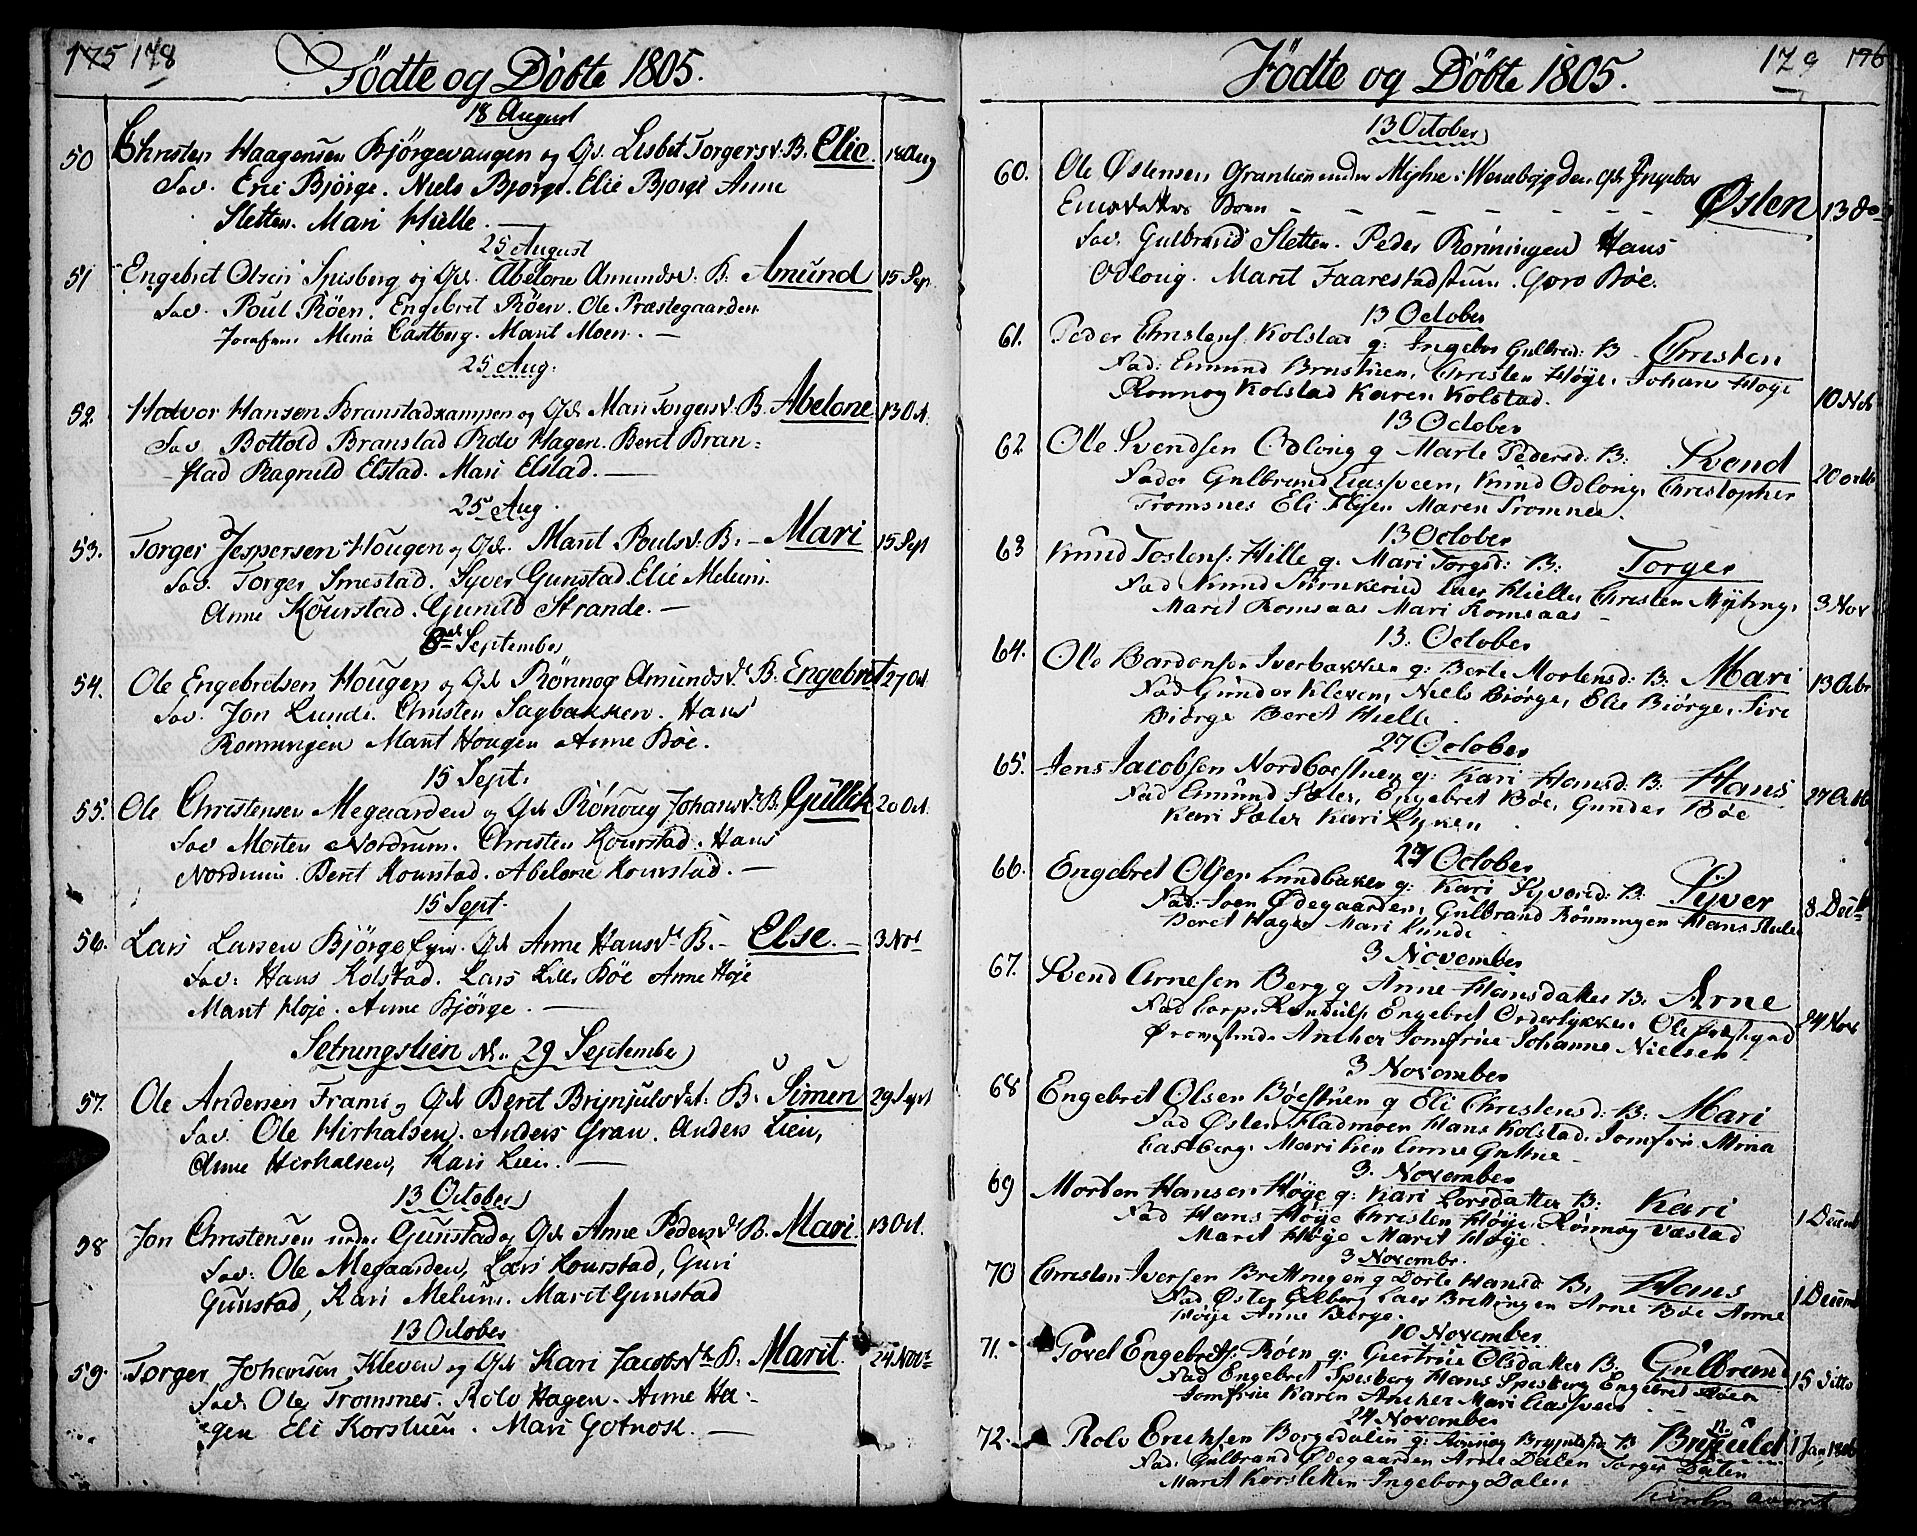 175 178
Fødte og Døbte 1805.
18 August
50 Christen Haagensen Bjørgevangen og Qv. Lisbet Torgersd: B. Elie. 18 Aug
Fad. Eric Bjørge. Niels Bjørge. Elie Bjørge Anne
Sletten. Mari Hielle.
25 August
51 Engebret Olsen Spisberg og Qv. Abelone Amundsd: B. Amund 15 Sep
Fad. Poul Røen. Engebret Røen. Ole Præstegaarden
Jomfrue Mina Castberg. Marit Moen. —
25 Aug:
52. Hansen Branstadkampen og Qv. Mari Torgersd: B. Abelone 13 Oct.
Fad Bottold Branstad Rolv Hagen. Berit Bran=
stad Ragnild Elstad. Mari Elstad. —
25 Aug.
53. Torger Jespersen Hougen og Qv. Marit Poulsd: B. – Mari 15 Sept
Fad. Torger Smestad. Syver Gunstad. Elie Melum.
Anne Kourstad. Gunild Strande. —
8de September
54. Ole Engebretsen Hougen og Qv. Rønnog Amundsd. B. Engebret 27 Oct.
Fad. Jon Lunde. Christen Sagbakken. Hans
Rønningen Marit Hougen Anne Bøe.
15 Sept.
55. Ole Christensen Megaarden og Qv. Rønnoug Johansd. B. Gullik 20 Oct.
Fad Morten Nordrum. Christen Kourstad. Hans
Nordrum. Berit Kourstad. Abelone Kourstad. —
15 Sept.
56. Lars Larsen Bjørge Eyer. Qv. Anne Hansd. B. – Else. – 3 Nov
Fad: Hans Kolstad. Lars Lille Bøe Anne Høje
Marit Høje. Anne Bjørge. —
29 September
57. Ole Andersen Frame og Qv. Berit Brynjulsdat: B: Simen 29 Sept
Fad: Ole Hirhalsen. Anders Gran. Anders Lien,
Anne Hirhalsen, Kari Lien. —
13 October
58 Jon Christensen under Gunstad og Qv. Anne Pedersd. B. Mari. 13 Oct.
Fad: Ole Megaarden, Lars Kourstad, Guri
Gunstad, Kari Melum. Marit Gunstad
13 October
59. Torger Johansen Kleven og Qv. Kari Jacobsd. B. Marit. 24 Novr
Fad. Ole Tromsnes. Rolv Hagen. Anne Ha-
gen Eli Korstuen. Mari Gotnosk. —
179 176
Fødte og Døbte 1805.
13 October
60. Ole Østensen Granlien under Myhre i Qv. Ingebor
Øslen 13 Do
Fad. Gulbrand Sletten. Peder Rønningen Hans
Odloug. Marit Faarestadstuen. Goro Bøe.
13 October
61. Peder Christens. Kolstad q: Ingebor Gulbrd: B – Christen
Fad: Emund Brustuen, Christen Høye, Johans Høye
Rønnog Kolstad Karen Kolstad. 10 Nov
13 October
62 Ole Svendsen Odloug q Marte Pedersd: B: Svend 20 octb
Fader Gulbrand Aasveen, Knud Odloug, Christopher
Tromsnes Eli Flyen Maren Tromnes.
13 October
63 Knud Tostens: Hille q. Mari Torgsd: B: Torger
Fad Knud Lars Hielle, Christen Myhre, 3 Nov
Marit Romsaas Mari Romsaas –
13. October
64. Ole Bardens: Iverbakken q: Berte Mortensd: B: Mari 13 Octbr
Fad Gunder Kleven, Niels Biørge, Elie Biørge, Siri
Biørge Beret Hielle
27 October
65. Jens Jacobsen Nordboestuen q: Kari Hansd: B: Hans 27 Octb
Fad Emund Sæler, Engebret Bøe, Gunder Bøe
Kari Sæler Kari Lyken
27 October
66. Engebret Olsen Lundbaken q: Kari Syversd: B: Syver 8 Decb
Fad: Joen Ødegaarden, Gulbrand Rønningen Hans
Beret Hagen Mari Lunde
3 November
67. Svend Arnesen Berg q Anne Hansdatter B: Arne 24 Nov
Fad Corp. Engebret Ole
Ancher Jomfrue Johanne Nielsen
3 November
68 Engebret Olsen Bøestuen q Eli Christensd: B: Mari
Fad Østen Fladmoen Hans Kolstad, Jomfrue Mina
Castberg. Mari Lien
3. November
69 Morten Hansen Høye q: Kari Larsdatter B: Kari
Fad Hans Høye Christen Høye, Rønnog Vastad 1 Decemb
Marit Høye Marit Høye
3 Novembr.
70 Christen Iversen Brettingen q Dorte Hansd B: Hans
Fad Østen Lars Brettingen Arne Bøe Anne 1 Decemb
Høye Anne Berge.
10 November
71. Povel Engebrets. Røen q: Giertrue Olsdatter B: Gulbrand
Fad Engebret Spisberg Hans Spisberg Engebret Røen 15 ditto
Jomfrue Karen Ancher Mari Aasveen
24 November
72. Rolv Erichsen Borgedalen q: Rønnog B: Brynuld 1 Jan 1806
Fad. Gulbrand Ødegaarden Arne Dalen Torger Dalen
Marit Korslien Ingeborg Dalen